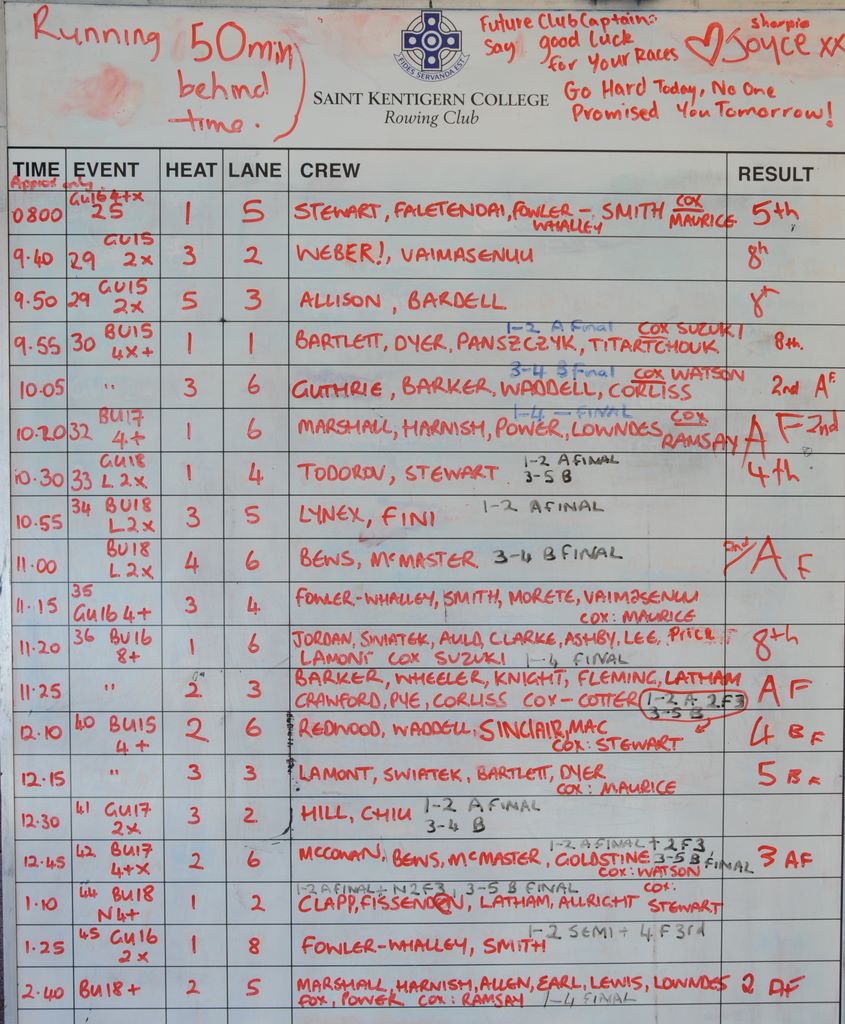 Running 50 min behind time.
FIDES SERVANDA EST
SAINT KENTIGERN COLLEGE
Rowing Club
Future Club Captain: sharpie
Say good Luck for Your Races ♡ Joyce xx
Go Hard Today, No One Promised You Tomorrow!
TIME EVENT HEAT LANE CREW RESULT
Approx only
0800 GU16 4+x 25 1 5 STEWART, FALETENDAI, FOWLER-WHALLEY SMITH COX MAURICE 5th
9.40 29 GU15 2x 3 2 WEBER!, VAIMASENUU 8th
9.50 29 GU15 2x 5 3 ALLISON, BARDELL 8th
9.55 30 BU15 4x+ 1 1 BARTLETT, DYER, PANSZCZYK, TITARTCHOUK 1-2 A Final COX SUZUKI 8th.
10.05 " 3 6 GUTHRIE, BARKER, WADDELL, CORLISS 3-4 B Final COX WATSON 2nd AF
10.20 32 BU17 4+ 1 6 MARSHALL, HARNISH, POWER, LOWNDES 1-4 - FINAL COX RAMSAY AF 2nd
10.30 33 GU18 L2x 1 4 TODOROV, STEWART 1-2 A FINAL 3-5 B 4th
10.55 34 BU18 L2x 3 5 LYNEX, FINI 1-2 A FINAL
11.00 BU18 L2x 4 6 BEWS, McMASTER 3-4 B FINAL 2nd AF
11.15 35 GU16 4+ 3 4 FOWLER-WHALLEY, SMITH, MORETE, VAIMASENUU COX: MAURICE
11.20 36 BU16 8+ 1 6 JORDAN, SWIATEK, AULD, CLARKE, ASHBY, LEE, Price LAMONT COX SUZUKI 1-4 FINAL 8th
11.25 " 2 3 BARKER, WHEELER, KNIGHT, FLEMING, LATHAM CRAWFORD, PYE, CORLISS COX-COTTER 1-2 A 2F3 3-5 B AF
12.10 40 BU15 4+ 2 6 REDWOOD, WADDELL, SINCLAIR, MAC COX: STEWART 4 BF
12.15 " 3 3 LAMONT, SWIATEK, BARTLETT, DYER COX: MAURICE 5 BF
12.30 41 GU17 2x 3 2 HILL, CHIU 1-2 A FINAL 3-4 B
12.45 42 BU17 4+x 2 6 MCCOWAN, BEWS, McMASTER, GOLDSTINE 1-2 A FINAL + 2F3, 3-5 B FINAL COX: WATSON 3 AF
1.10 44 BU18 N4+ 1 2 1-2 A FINAL + N2F3, 3-5 B FINAL CLAPP, FISSENDEN, LATHAM, ALLRIGHT COX: STEWART
1.25 45 GU16 2x 1 8 FOWLER-WHALLEY, SMITH 1-2 SEMI + 4 F 3rd
2.40 BU18+ 2 5 MARSHALL, HARNISH, ALLEN, EARL, LEWIS, LOWNDES FOX, POWER COX: RAMSAY 1-4 FINAL 2 AF